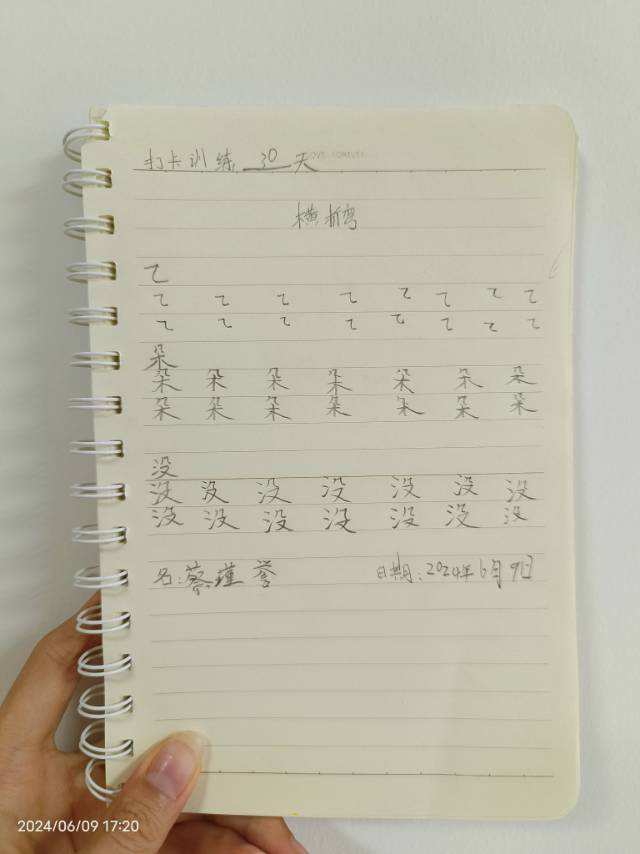 打卡训练 30 天
LOVE FOREVER
横折弯
乙
乙 乙 乙 乙 乙 乙 乙 乙
乙 乙 乙 乙 乙 乙 乙 乙
朵
朵 朵 朵 朵 朵 朵 朵
朵 朵 朵 朵 朵 朵 朵
没
没 没 没 没 没 没 没
没 没 没 没 没 没 没
名:蔡瑾誉 日期:2024年6月9日
2024/06/09 17:20